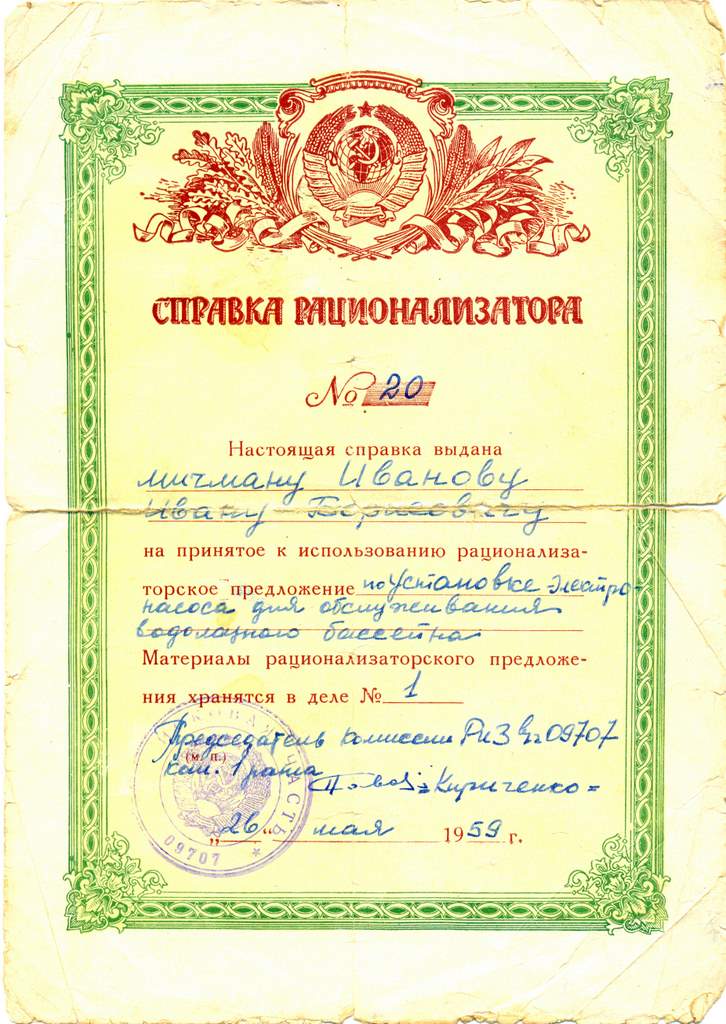 СПРАВКА РАЦИОНАЛИЗАТОРА
№ 20
Настоящая справка выдана
мичману Иванову
Ивану Борисовичу
на принятое к использованию рационализа-
торское предложение по установке электро-
насоса для обслуживания
водолазного бассейна
Материалы рационализаторского предложе-
ния хранятся в деле № 1
Председатель комиссии РиЗ в/ч 09707
(м. п.)
кап. 1 ранга Кириченко
„26“ мая 1959 г.
ЧАСТЬ
09707